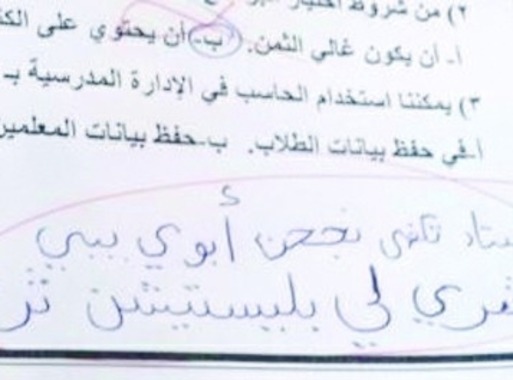 ٢) من شروط اختيار
أ- أن يكون غالي الثمن. ب- أن يحتوي على
٣) يمكننا استخدام الحاسب في الإدارة المدرسية بـ
أ-في حفظ بيانات الطلاب. ب-حفظ بيانات المعلمين
نجحن أبوي يبي
لي بليستيشن